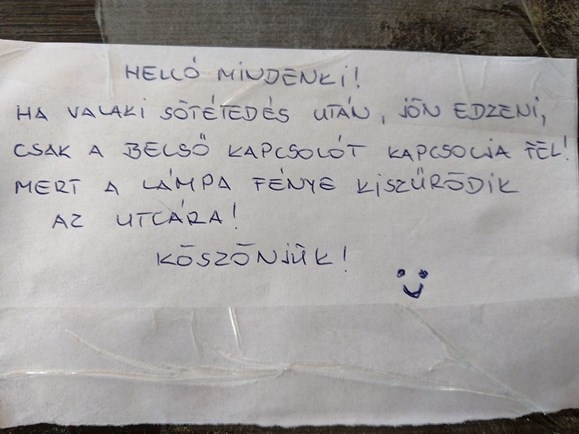 HELLÓ MINDENKI!
HA VALAKI SÖTÉTEDÉS UTÁN, JÖN EDZENI,
CSAK A BELSŐ KAPCSOLÓT KAPCSOLJA FEL!
MERT A LÁMPA FÉNYE KISZŰRŐDIK
AZ UTCÁRA!
KÖSZÖNJÜK!